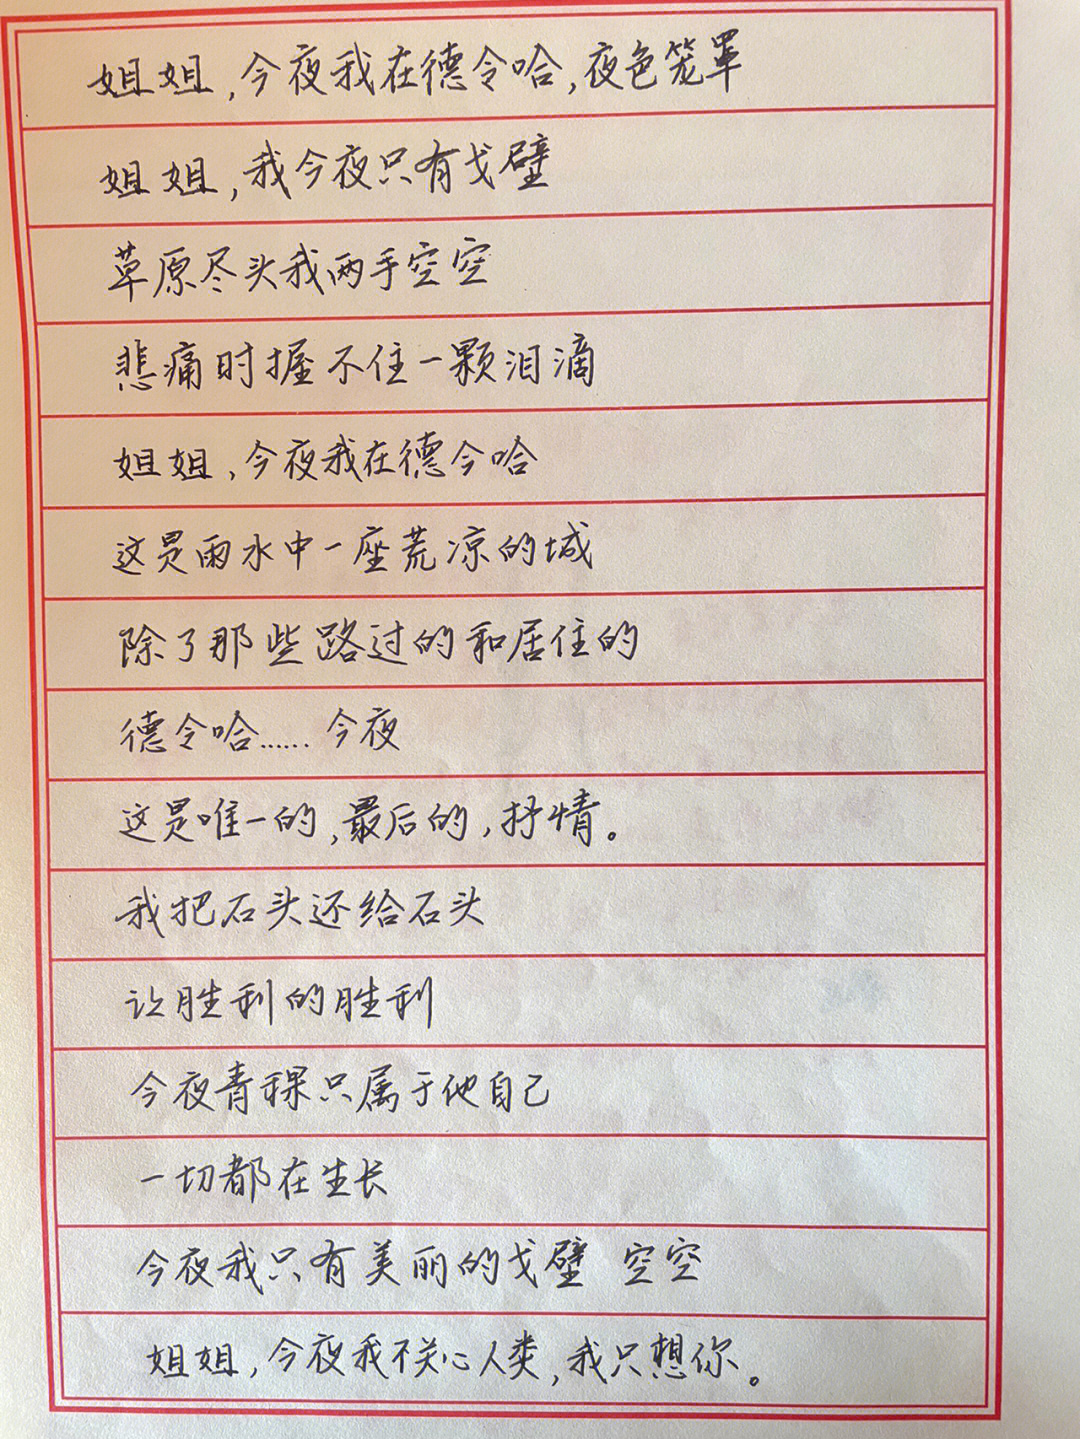 姐姐,今夜我在德令哈,夜色笼罩
姐姐,我今夜只有戈壁
草原尽头我两手空空
悲痛时握不住一颗泪滴
姐姐,今夜我在德令哈
这是雨水中一座荒凉的城
除了那些路过的和居住的
德令哈……今夜
这是唯一的,最后的,抒情。
我把石头还给石头
让胜利的胜利
今夜青稞只属于他自己
一切都在生长
今夜我只有美丽的戈壁 空空
姐姐,今夜我不关心人类,我只想你。